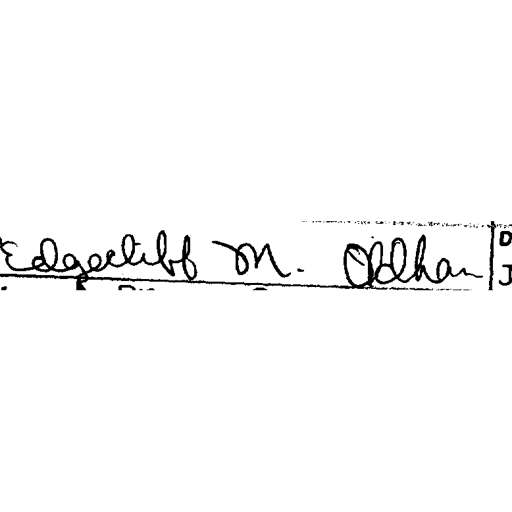 Edgecliff M. Oldham